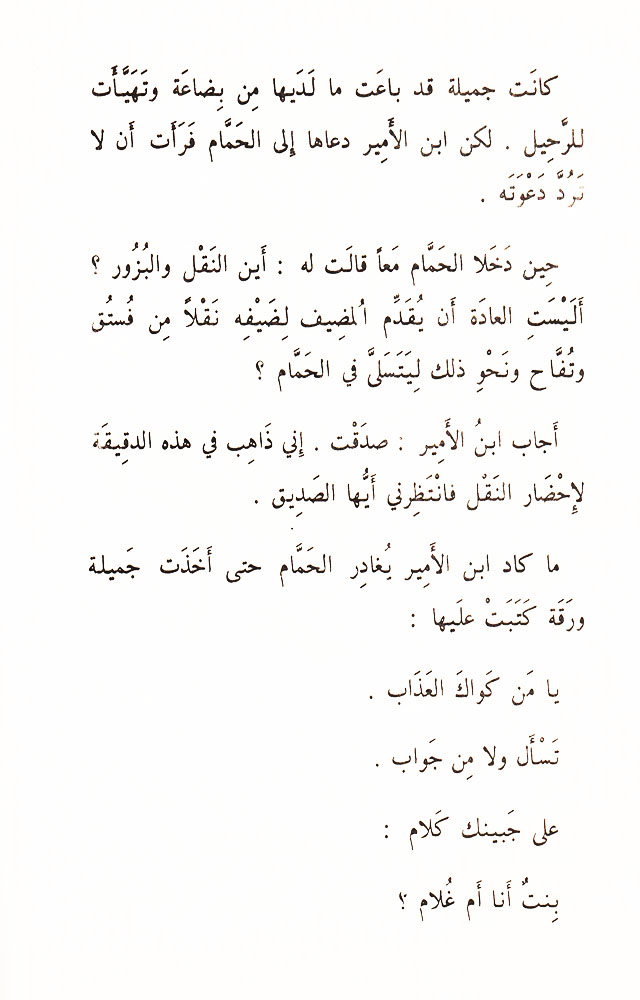 كانَت جميلة قد باعَت ما لَدَيها مِن بِضاعَة وتَهَيَّأَت
للرَّحِيل . لكن ابن الأَمِير دعاها إلى الحَمَّام فَرَأَت أَن لا
تَرُدَّ دَعْوَتَه .
حِين دَخَلا الحَمَّام مَعاً قالَت له : أَين النَقْل والبُزُور ؟
أَلَيْسَتِ العادَة أَن يُقَدِّم المُضِيف لِضَيْفِه نَقْلاً مِن فُستُق
وتُفَّاح ونَحْوِ ذلك لِيَتَسَلىَّ في الحَمَّام ؟
أَجاب ابنُ الأَمِير : صدَقْت . إِني ذَاهِب في هذه الدقِيقَة
لإِحْضَار النَقْل فانْتَظِرني أَيُّها الصَدِيق .
ما كاد ابن الأَمِير يُغادِر الحَمَّام حتى أَخَذَت جَميلة
ورَقَة كَتَبَتْ علَيها :
يا مَن كَواكَ العَذَاب .
تَسْأَل ولا مِن جَواب .
على جَبينك كَلام :
بِنتٌ أَنا أَم غُلام ؟